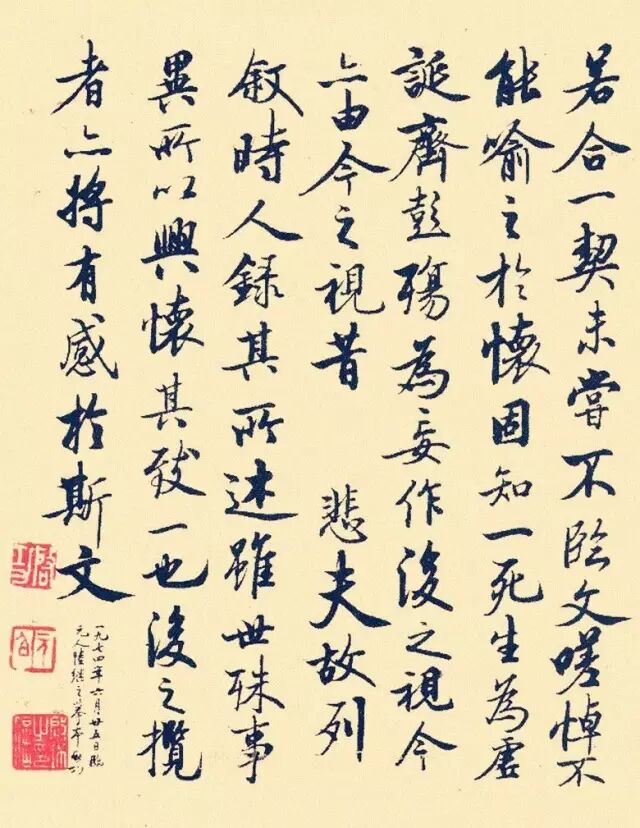 若合一契未嘗不臨文嗟悼不
能喻之於懷固知一死生為虛
誕齊彭殤為妄作後之視今
亦由今之視昔 悲夫故列
叙時人録其所述雖世殊事
異所以興懷其致一也後之攬
者亦將有感於斯文
一九七四年六月廿五日臨
元人陸繼之摹本 啟功
啟功
元白